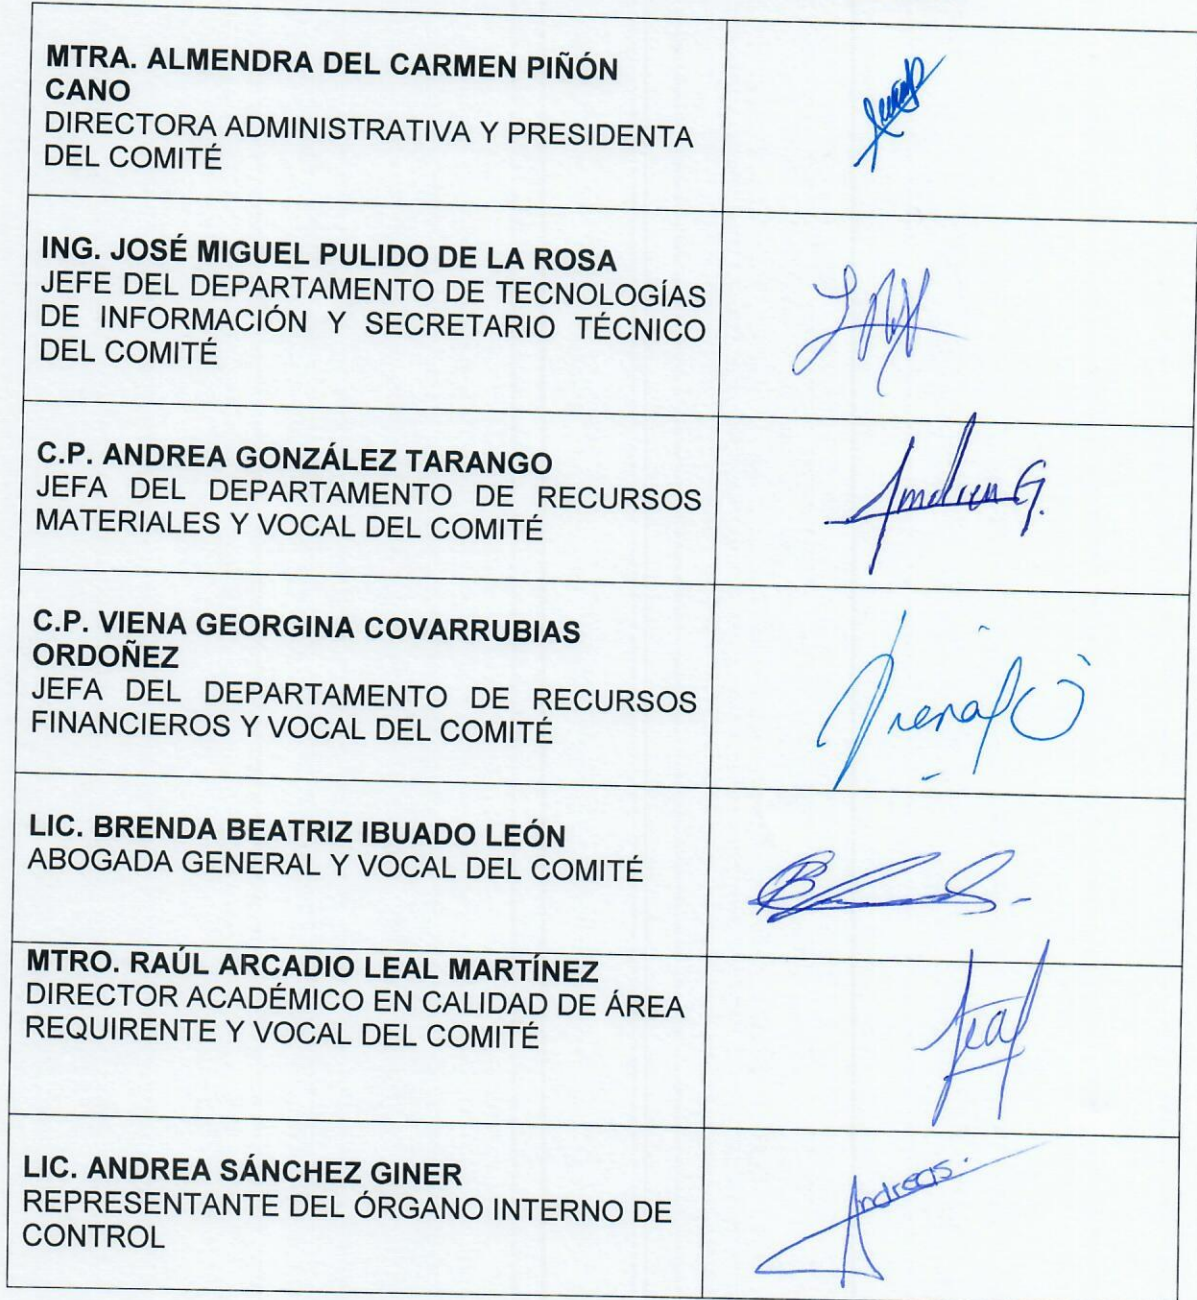 MTRA. ALMENDRA DEL CARMEN PIÑÓN
CANO
DIRECTORA ADMINISTRATIVA Y PRESIDENTA
DEL COMITÉ
ING. JOSÉ MIGUEL PULIDO DE LA ROSA
JEFE DEL DEPARTAMENTO DE TECNOLOGÍAS
DE INFORMACIÓN Y SECRETARIO TÉCNICO
DEL COMITÉ
C.P. ANDREA GONZÁLEZ TARANGO
JEFA DEL DEPARTAMENTO DE RECURSOS
MATERIALES Y VOCAL DEL COMITÉ
Andrea G.
C.P. VIENA GEORGINA COVARRUBIAS
ORDOÑEZ
JEFA DEL DEPARTAMENTO DE RECURSOS
FINANCIEROS Y VOCAL DEL COMITÉ
LIC. BRENDA BEATRIZ IBUADO LEÓN
ABOGADA GENERAL Y VOCAL DEL COMITÉ
MTRO. RAÚL ARCADIO LEAL MARTÍNEZ
DIRECTOR ACADÉMICO EN CALIDAD DE ÁREA
REQUIRENTE Y VOCAL DEL COMITÉ
Leal
LIC. ANDREA SÁNCHEZ GINER
REPRESENTANTE DEL ÓRGANO INTERNO DE
CONTROL
Andreas.